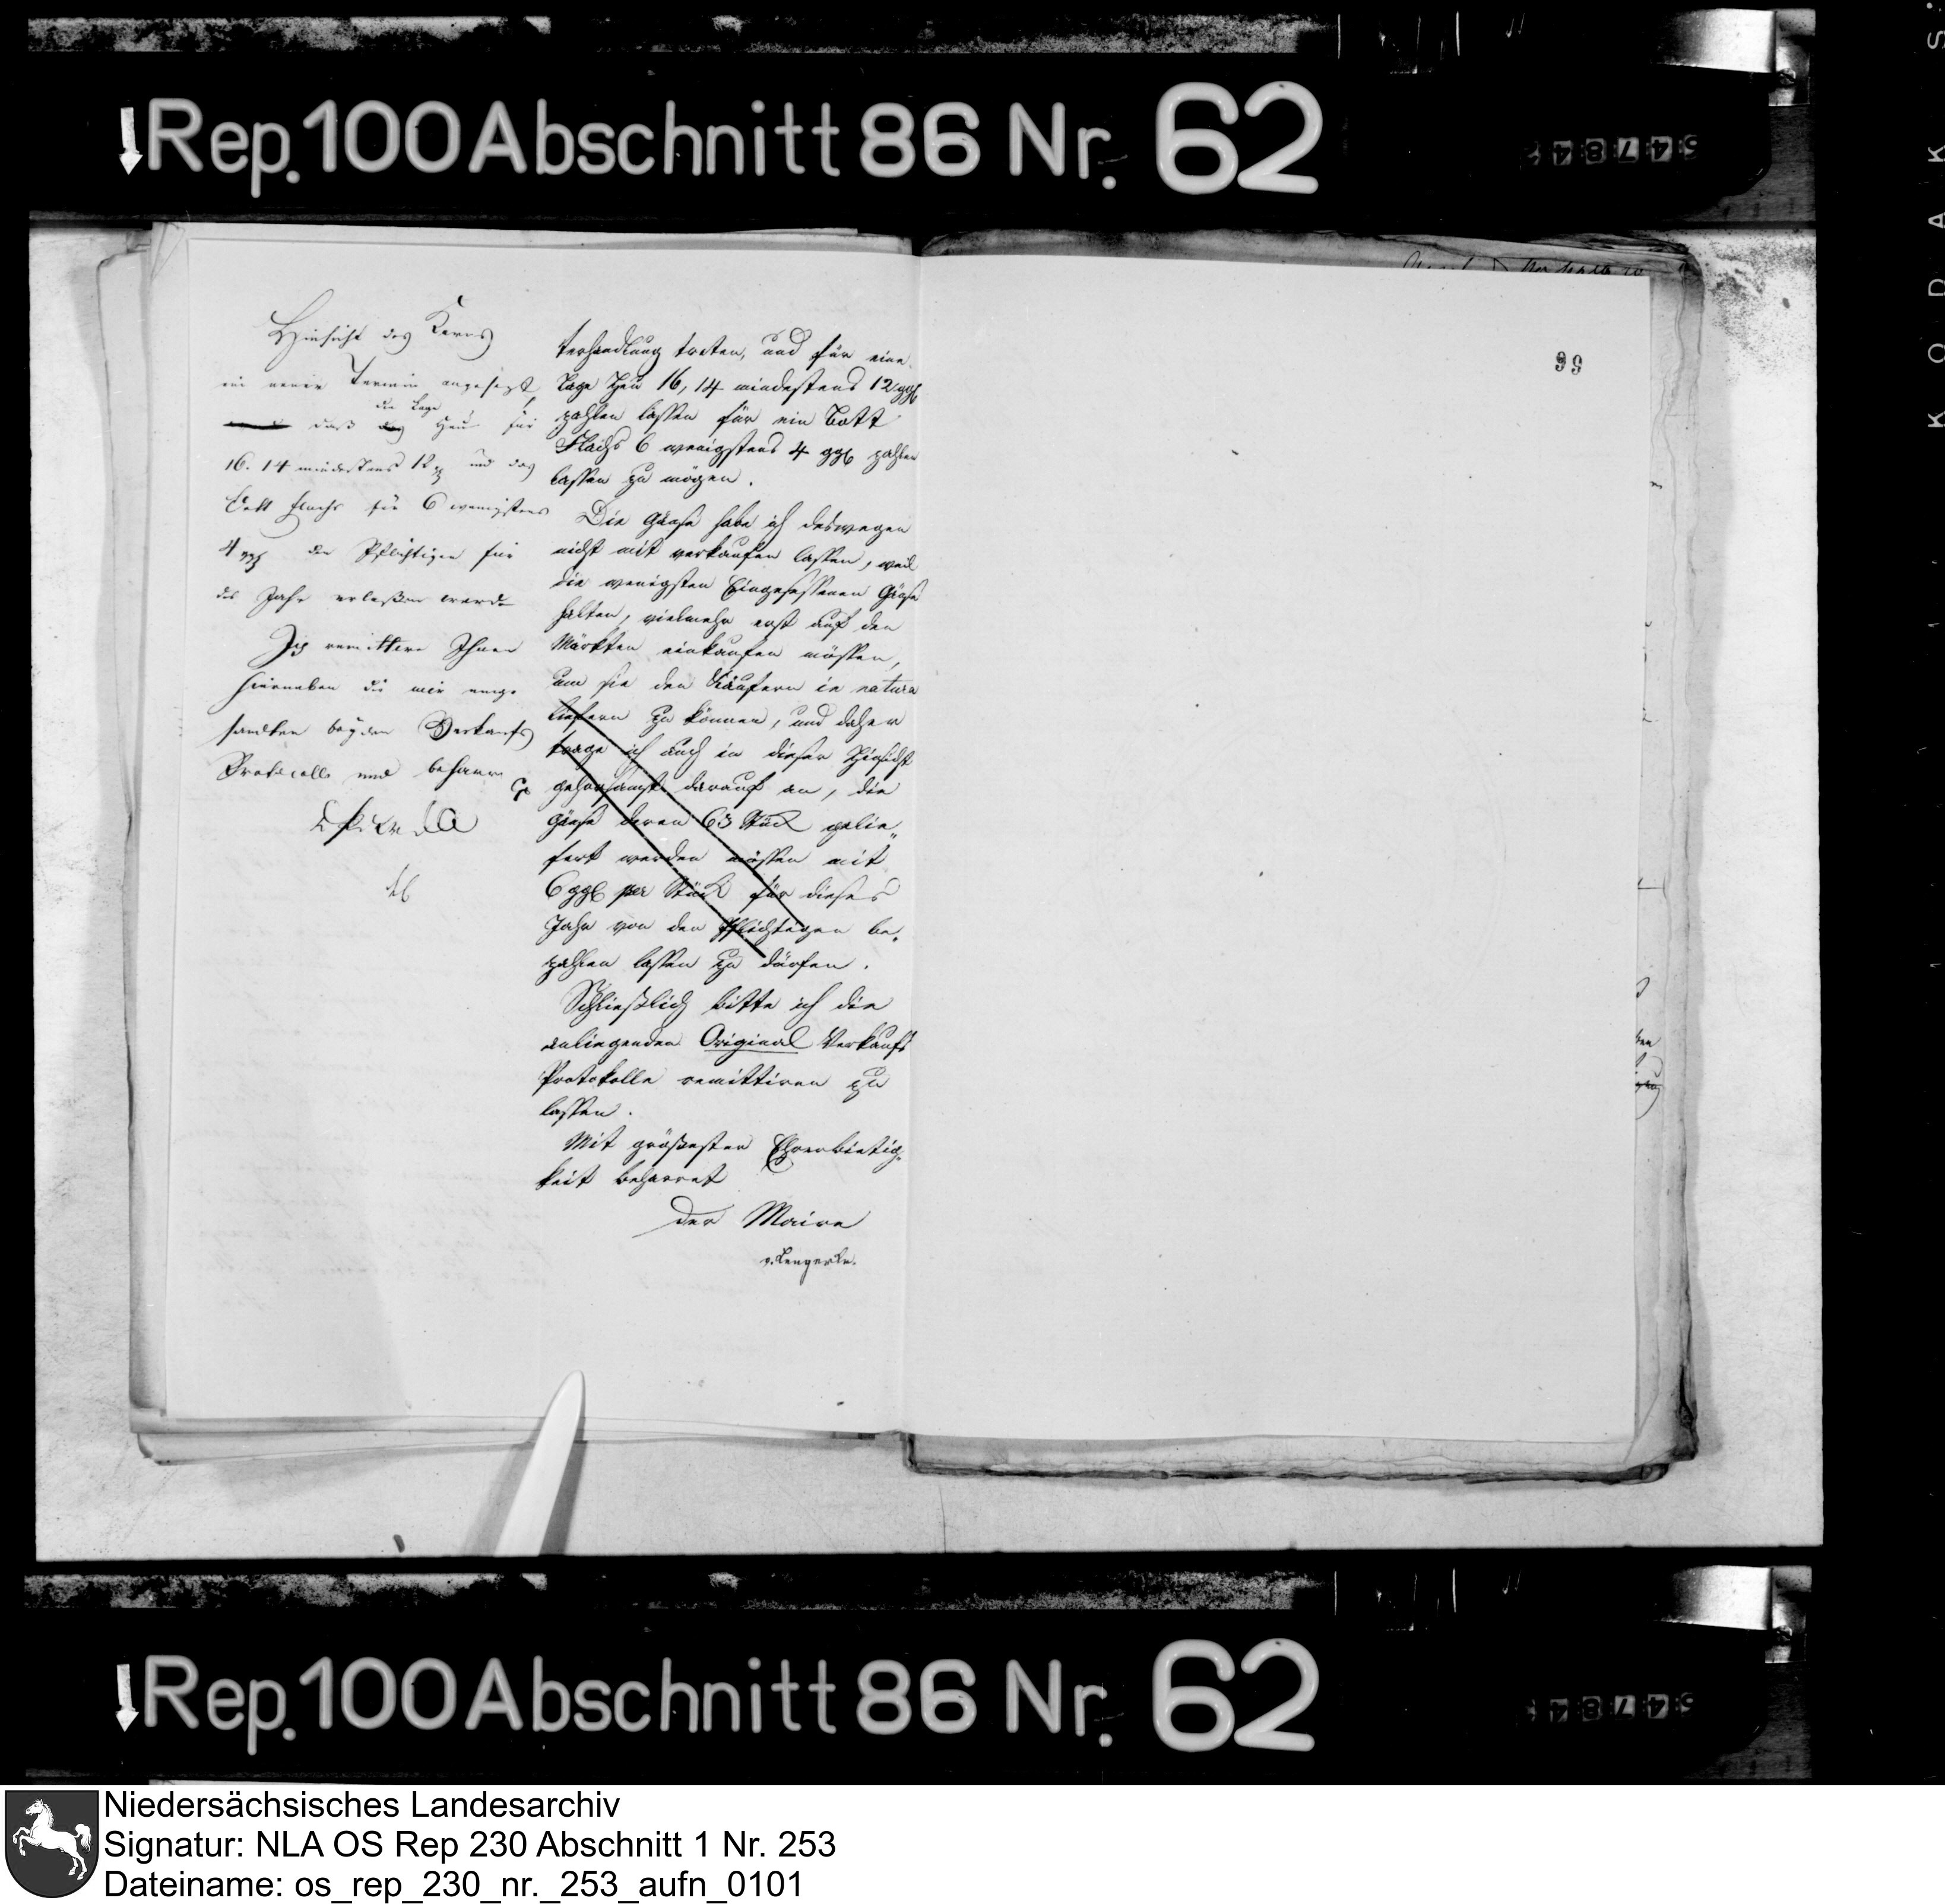 Rep. 100 Abschnitt 86 Nr. 62
Hinsicht des Korns
ein neuer Termin angesetzt,
daß die Lage Heu für
16. 14 mindestens 12 und das
Bott Flachs für 6 wenigstens
4 ggl den Pflichtigen für
das Jahr erlaßen werde
Ich remittire Ihnen
hierneben die mir einge-
sandten beyden Verkaufs
Protocolle und beharre
terhandlung treten, und für eine
Lage Heu 16, 14 mindestens 12 ggl
zahlen lassen für ein Bott
Flachs 6 wenigstens 4 ggl zahlen
lassen zu mögen.
Die Gänse habe ich deswegen
nicht mit verkaufen lassen, weil
die wenigsten Eingesessenen Gänse
halten, vielmehr erst auf den
Märkten einkaufen müssen,
um sie den Käufern in natura
liefern zu können, und daher
trage ich auch in dieser Hinsicht
gehorsamst darauf an, die
Gänse deren 63 Stück gelie„
fert werden müssen mit
6 ggl per Stück für dieses
Jahr von den Pflichtigen be„
zahlen lassen zu dürfen.
Schließlich bitte ich die
anliegenden Original Verkaufs
Protokolle remittiren zu
lassen.
Mit größester Ehrerbietig„
keit beharret
Der Maire
v. Lengerke.
99
Rep. 100 Abschnitt 86 Nr. 62
KODAK S
Niedersächsisches Landesarchiv
Signatur: NLA OS Rep 230 Abschnitt 1 Nr. 253
Dateiname: os_rep_230_nr._253_aufn_0101